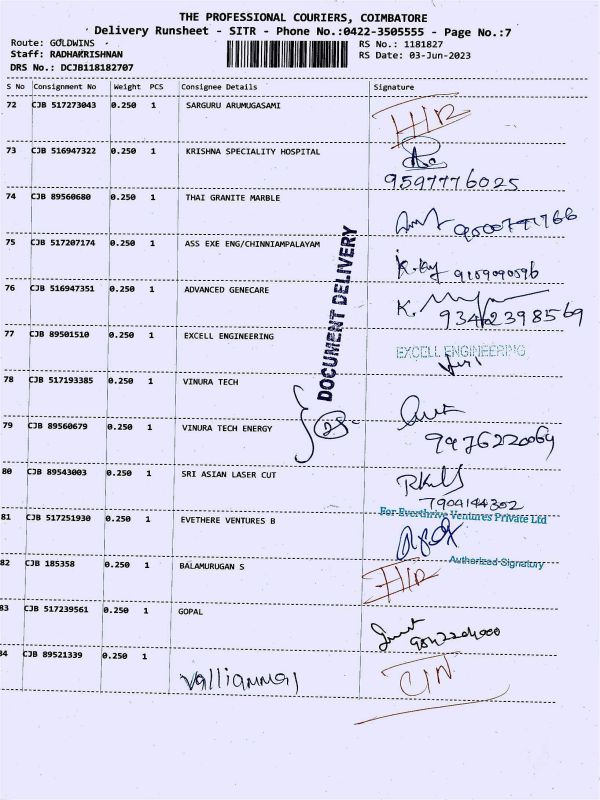 THE PROFESSIONAL COURIERS, COIMBATORE
Delivery Runsheet - SITR - Phone No.:0422-3505555 - Page No.:7
Route: GOLDWINS
RS No.: 1181827
Staff: RADHAKRISHNAN
RS Date: 03-Jun-2023
DRS No.: DCJB118182707
S No Consignment No Weight PCS Consignee Details Signature
72 CJB 517273043 0.250 1 SARGURU ARUMUGASAMI
73 CJB 516947322 0.250 1 KRISHNA SPECIALITY HOSPITAL
9597776025
74 CJB 89560680 0.250 1 THAI GRANITE MARBLE
75 CJB 517207174 0.250 1 ASS EXE ENG/CHINNIAMPALAYAM
DOCUMENT DELIVERY
76 CJB 516947351 0.250 1 ADVANCED GENECARE
9342398569
77 CJB 89501510 0.250 1 EXCELL ENGINEERING
EXCELL ENGINEERING
78 CJB 517193385 0.250 1 VINURA TECH
79 CJB 89560679 0.250 1 VINURA TECH ENERGY
9976220069
80 CJB 89543003 0.250 1 SRI ASIAN LASER CUT
7904144302
81 CJB 517251930 0.250 1 EVETHERE VENTURES B
For Everthrive Ventures Private Ltd
Authorized Signatory
82 CJB 185358 0.250 1 BALAMURUGAN S
83 CJB 517239561 0.250 1 GOPAL
9842204000
84 CJB 89521339 0.250 1
Valliammal